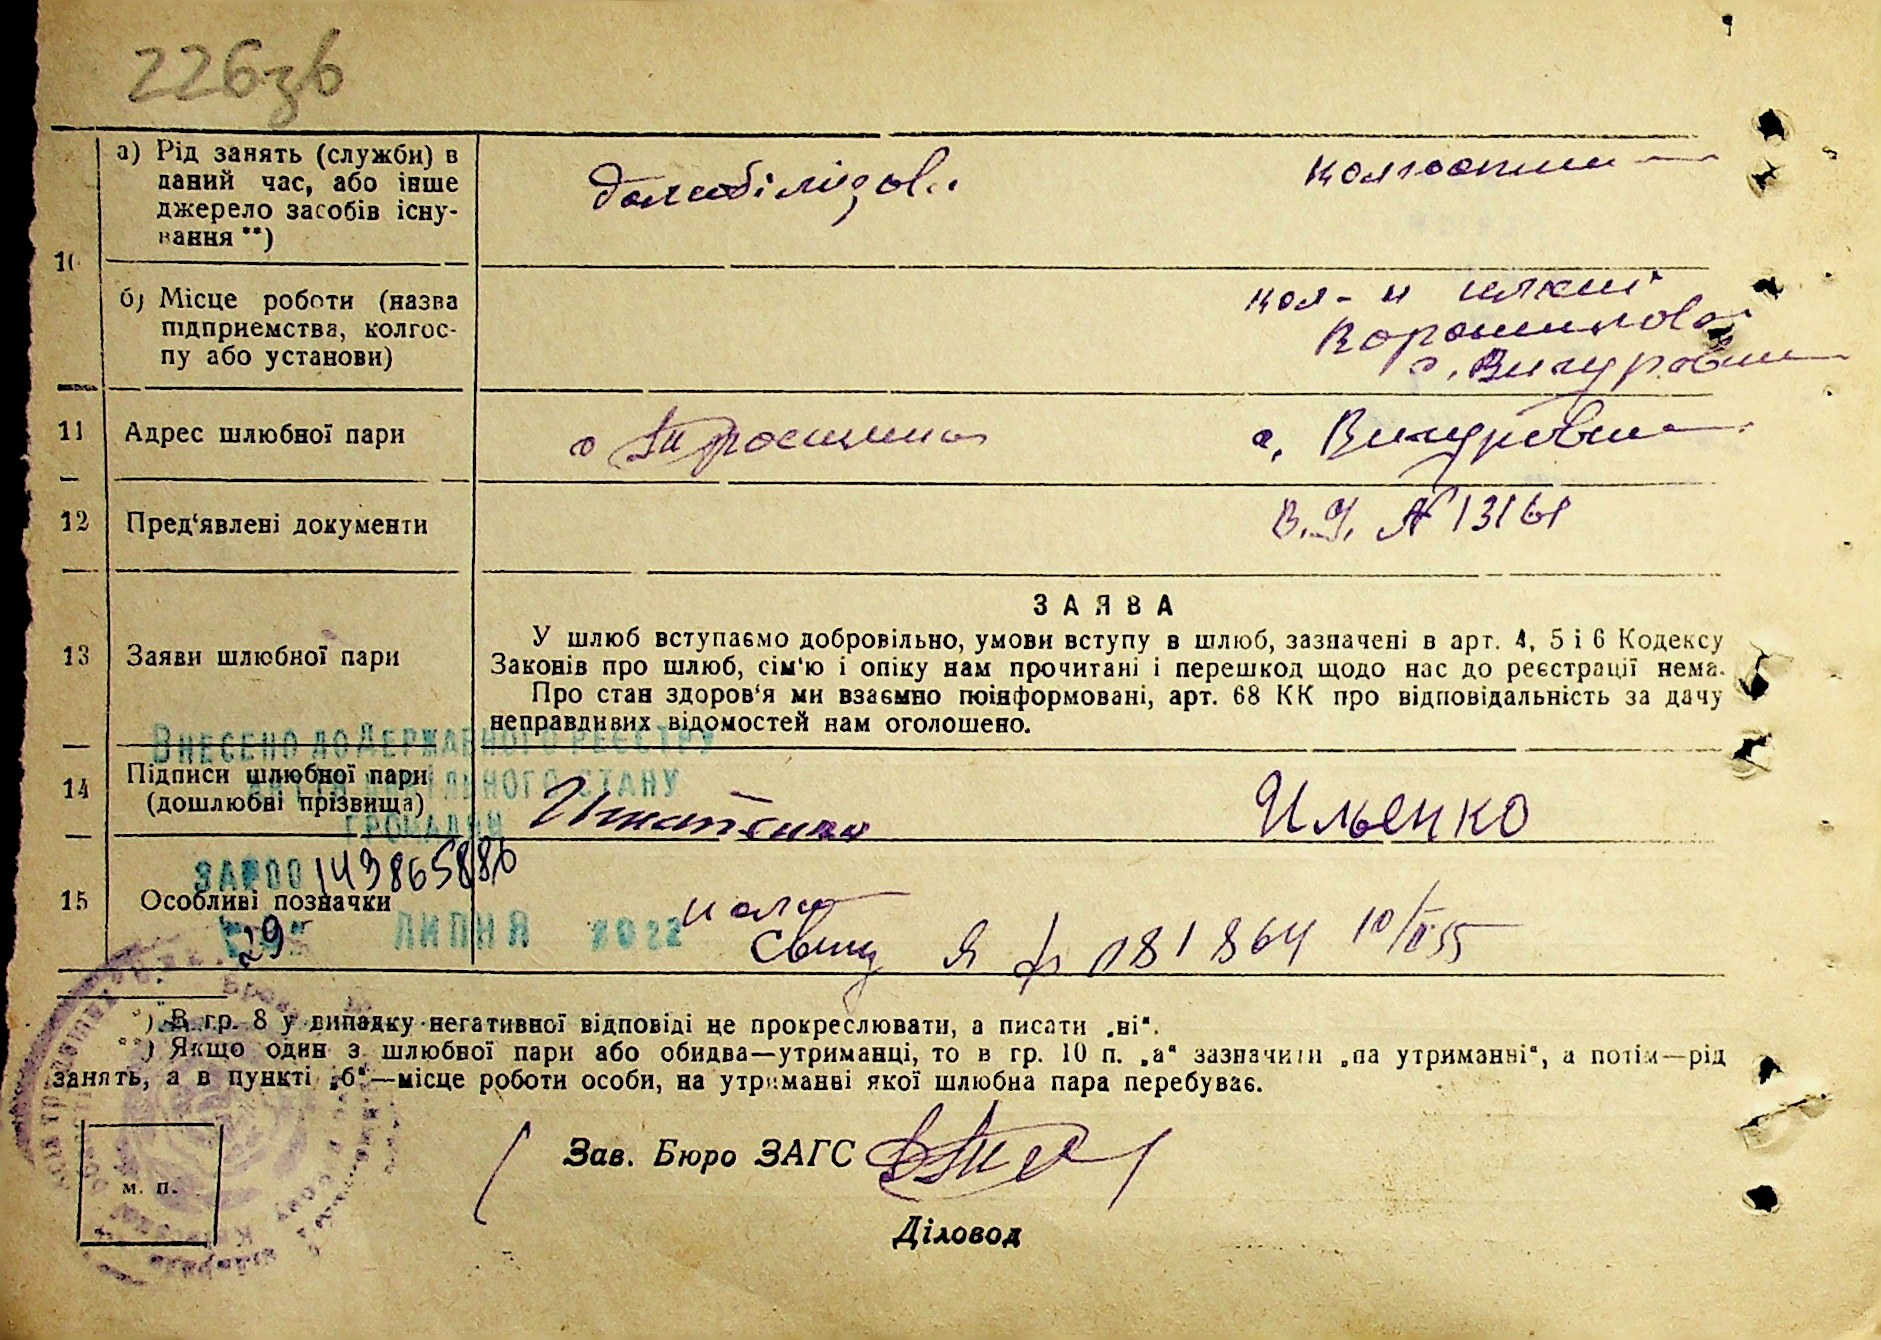 226зв
10
а) Рід занять (служби) в
даний час, або інше
джерело засобів існу-
вання **)
демобілізов.
б) Місце роботи (назва
підприємства, колгос-
пу або установи)
Ворошилова
с. Вигурівщина
11 Адрес шлюбної пари
с Троєщина с. Вигурівщина
12 Пред'явлені документи
В.У. № 13161
ЗАЯВА
13 Заяви шлюбної пари
У шлюб вступаємо добровільно, умови вступу в шлюб, зазначені в арт. 4, 5 і 6 Кодексу
Законів про шлюб, сім'ю і опіку нам прочитані і перешкод щодо нас до реєстрації нема.
Про стан здоров'я ми взаємно поінформовані, арт. 68 КК про відповідальність за дачу
неправдивих відомостей нам оголошено.
ВНЕСЕНО ДО ДЕРЖАВНОГО РЕЄСТРУ
АКТІВ ЦИВІЛЬНОГО СТАНУ
ГРОМАДЯН
14 Підписи шлюбної пари
(дошлюбні прізвища)
Ильенко
ЗА №00 143865886
15 Особливі позначки
"29" ЛИПНЯ 2022
181864 10/II 55
*) В гр. 8 у випадку негативної відповіді не прокреслювати, а писати „ні“.
**) Якщо один з шлюбної пари або обидва—утриманці, то в гр. 10 п. „а“ зазначити „на утриманні“, а потім—рід
занять, а в пункті „б“—місце роботи особи, на утриманні якої шлюбна пара перебуває.
Зав. Бюро ЗАГС
м. п.
Діловод